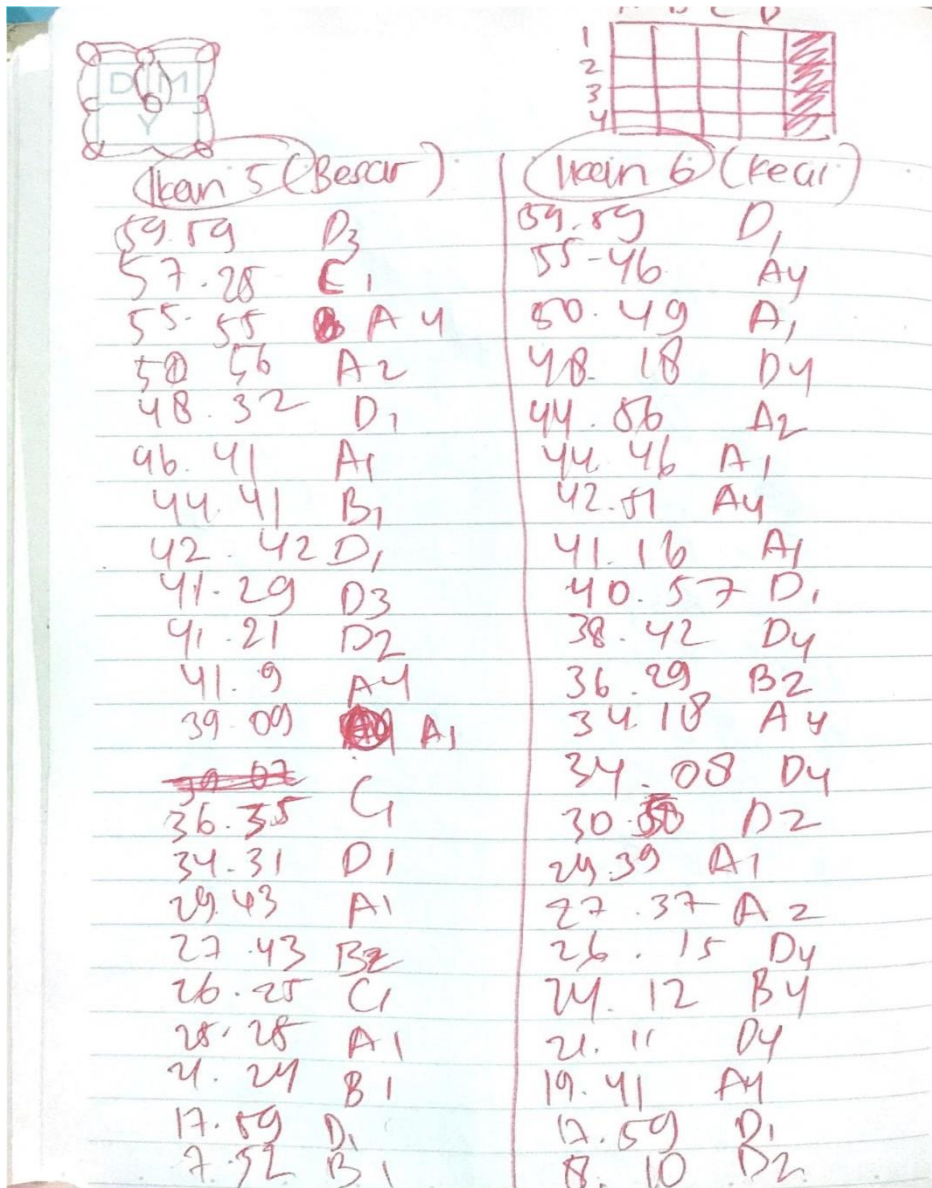 A B C D
D M
Y
1
2
3
4
Ikan 5 (Besar)
59.59 D3
57.28 C1
55.55 A4
50 56 A2
48.32 D1
46.41 A1
44.41 B1
42.42 D1
41.29 D3
41.21 D2
41.9 A4
39.09 A1
39.07
36.35 C1
34.31 D1
29.43 A1
27.43 B2
26.25 C1
25.28 A1
21.24 B1
17.59 D1
7.52 B1
Ikan 6 (Kecil)
59.59 D1
55-46 A4
50.49 A1
48.18 D4
44.56 A2
44.46 A1
42.51 A4
41.16 A1
40.57 D1
38.42 D4
36.29 B2
34.18 A4
34.08 D4
30.50 D2
29.39 A1
27.37 A2
26.15 D4
24.12 B4
21.11 D4
19.41 A4
17.59 D1
8.10 D2